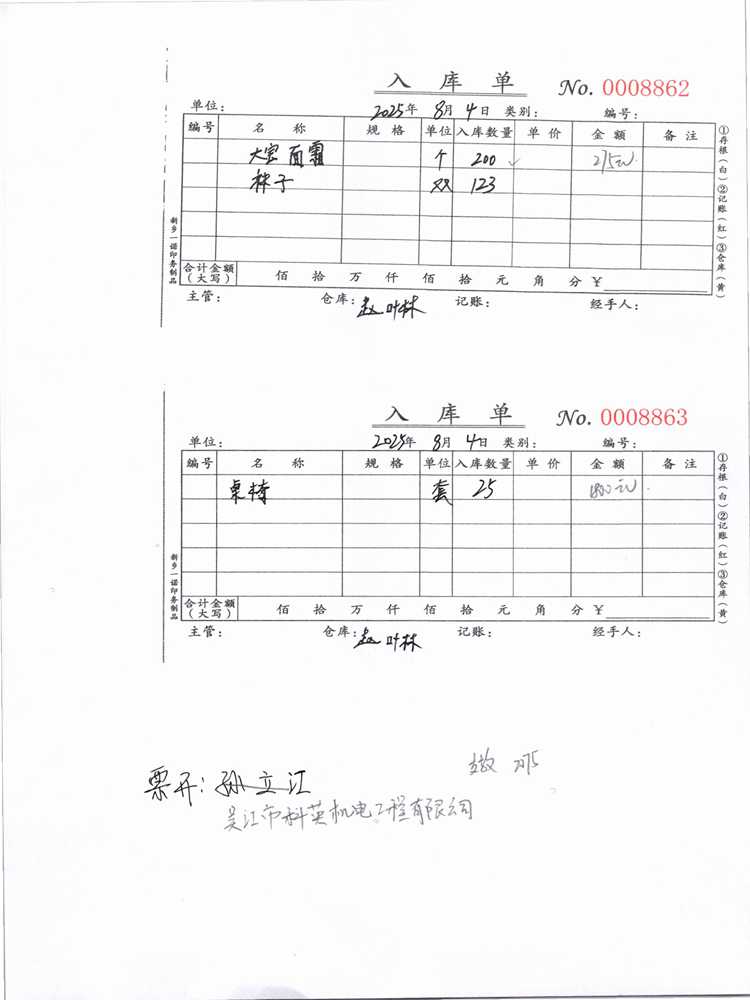 入库单 No. 0008862
单位： 2025年 8月 4日 类别： 编号：
编号 名称 规格 单位 入库数量 单价 金额 备注
大宝面霜 个 200 275元
袜子 双 123
合计金额（大写） 佰 拾 万 仟 佰 拾 元 角 分 ¥
主管： 仓库：赵叶林 记账： 经手人：
①存根（白）②记账（红）③仓库（黄）
新乡一诺印务制品
入库单 No. 0008863
单位： 2025年 8月 4日 类别： 编号：
编号 名称 规格 单位 入库数量 单价 金额 备注
桌椅 套 25 1800元
合计金额（大写） 佰 拾 万 仟 佰 拾 元 角 分 ¥
主管： 仓库：赵叶林 记账： 经手人：
①存根（白）②记账（红）③仓库（黄）
新乡一诺印务制品
票开：孙立江
吴江市科英机电工程有限公司